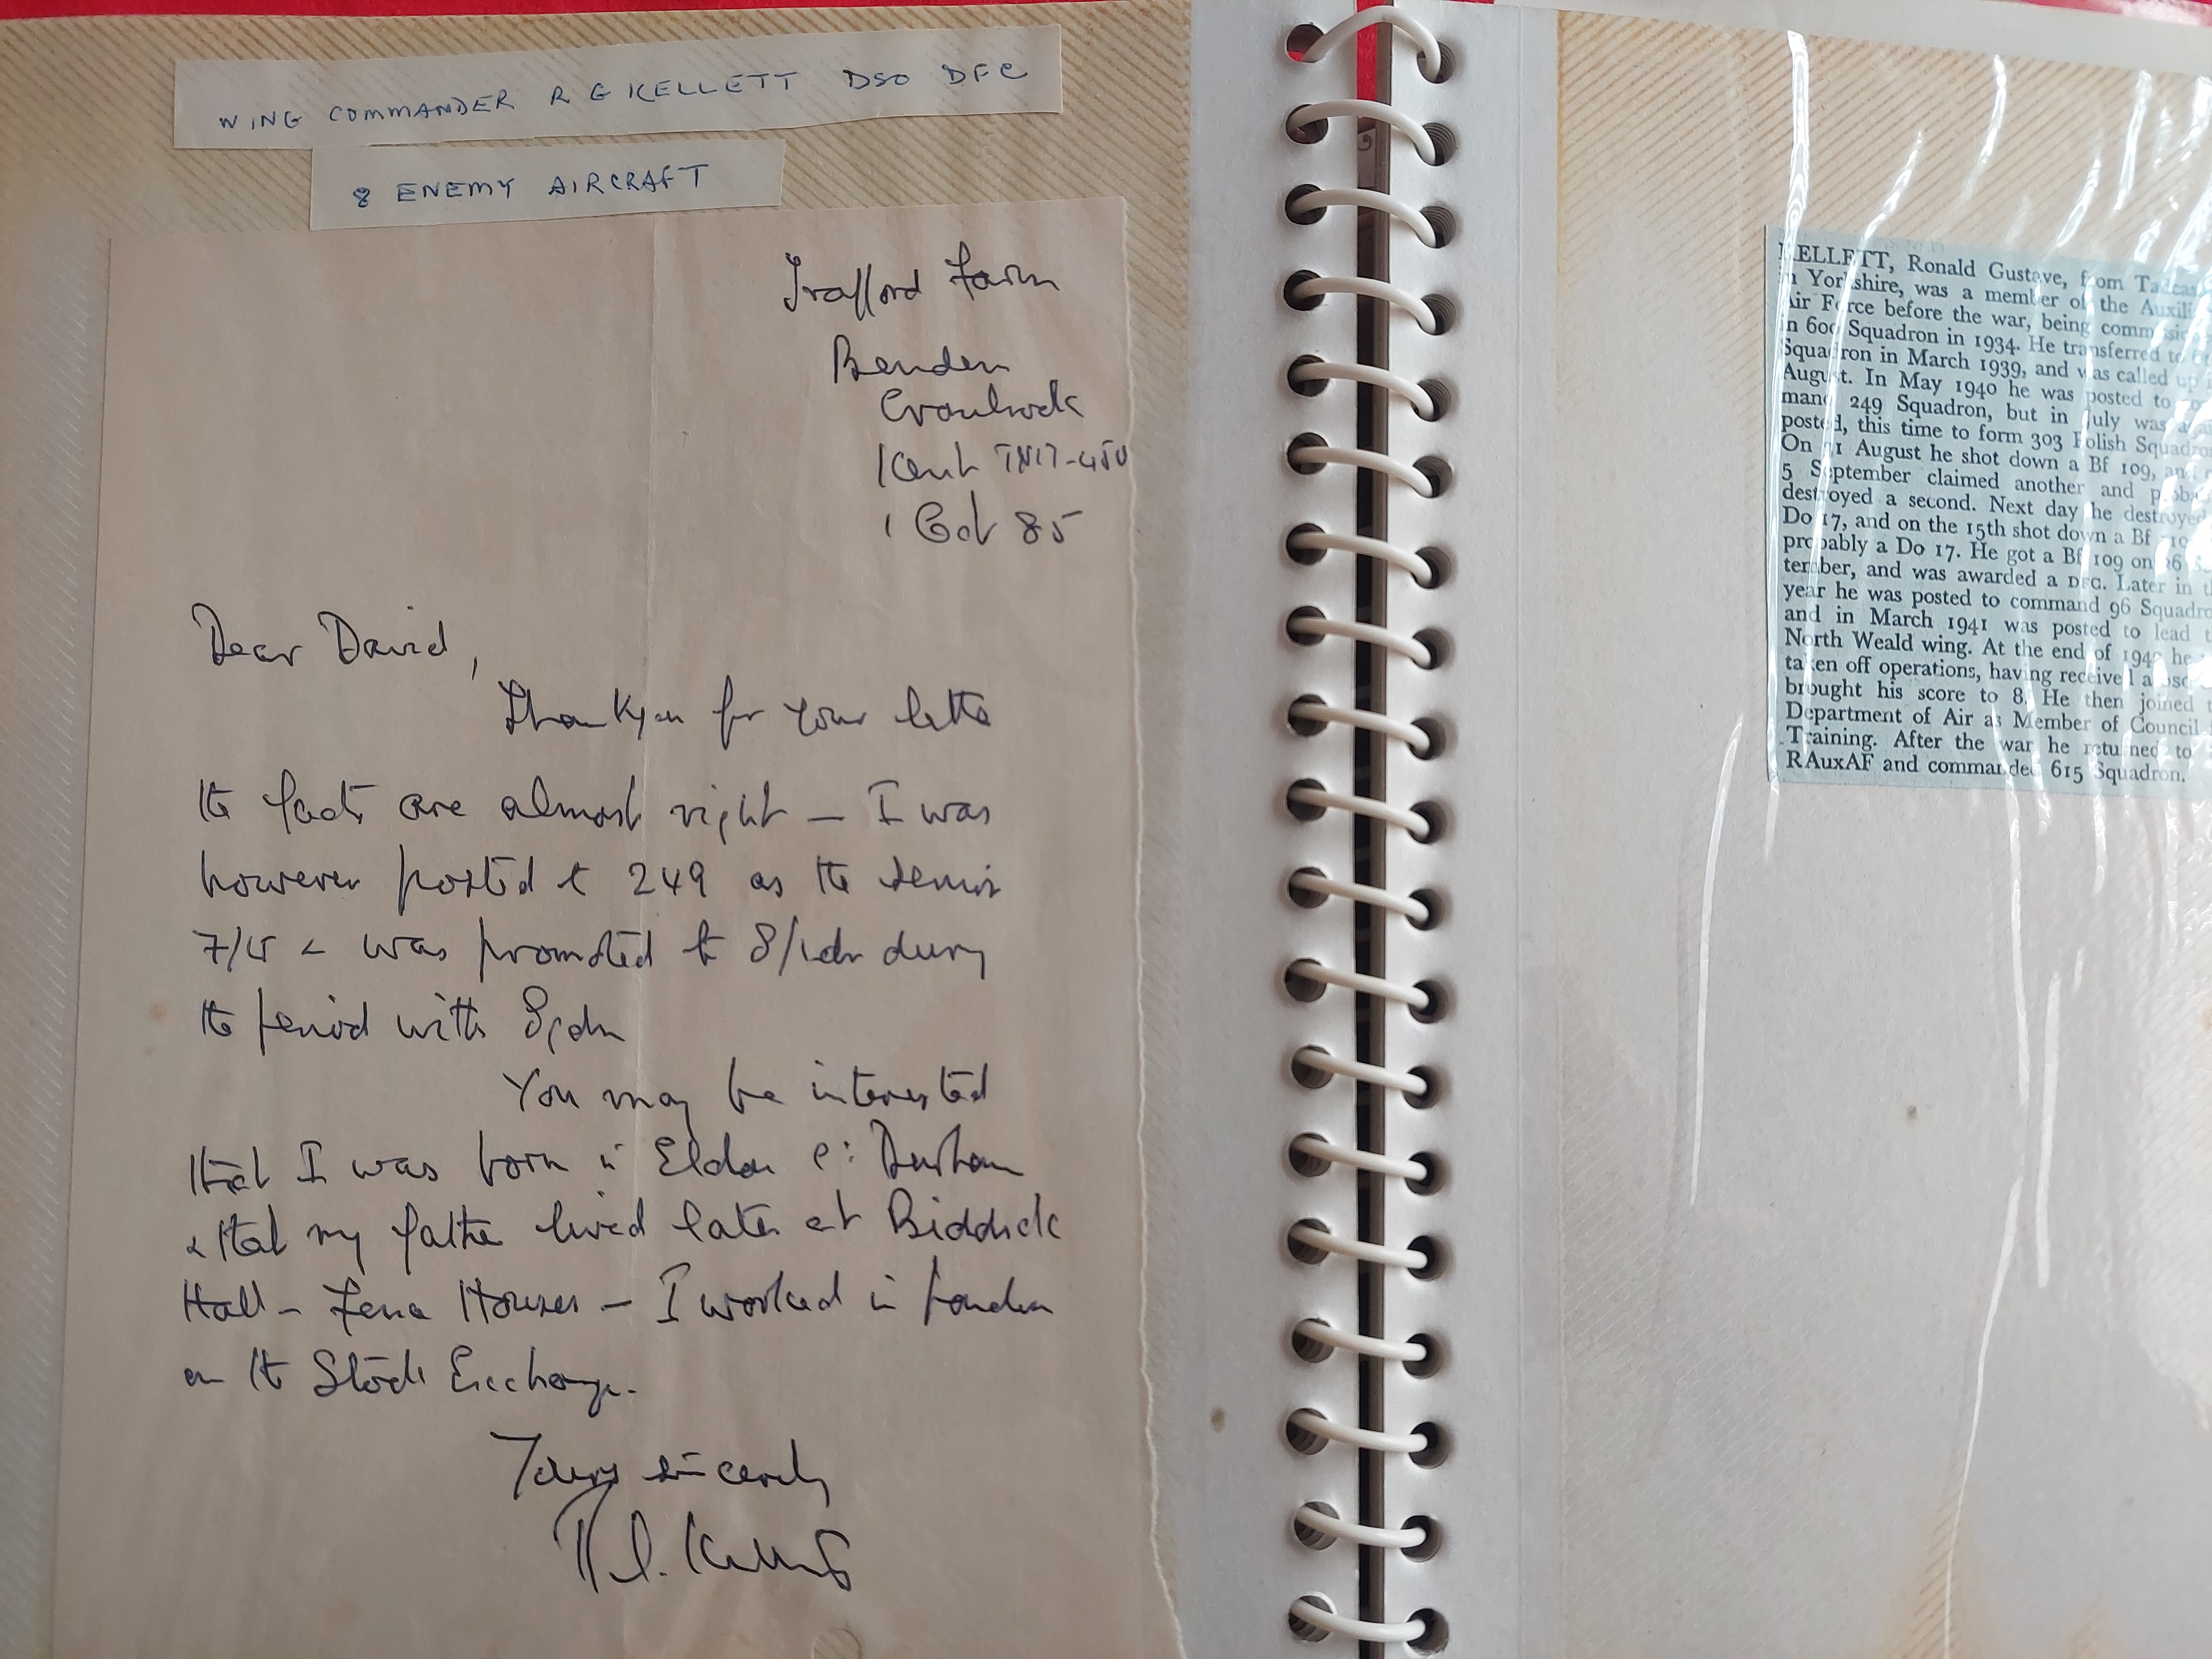 WING COMMANDER R G KELLETT DSO DFC
8 ENEMY AIRCRAFT
Trafford Farm
Benden
Cranbrook
Kent TN17-4
1 Oct 85
Dear David,
Thankyou for your letter
the facts are almost right – I was
however posted to 249 as the senior
F/Lt & was promoted to S/Ldr during
the period with Sqdn
You may be interested
that I was born in Eldon C: Durham
& that my father lived later at Biddick
Hall – Fence Houses – I worked in London
on the Stock Exchange.
Yours sincerely
R.G. Kellett
KELLETT, Ronald Gustave, from
in Yorkshire, was a member of the
Air Force before the war, being
in 600 Squadron in 1934. He transferred to
Squadron in March 1939, and was called up
August. In May 1940 he was posted to
mand 249 Squadron, but in July was
posted, this time to form 303 Polish
On 31 August he shot down a Bf 109,
5 September claimed another and
destroyed a second. Next day he destroyed
Do 17, and on the 15th shot down a Bf
probably a Do 17. He got a Bf 109 on 26
tember, and was awarded a DFC. Later in
year he was posted to command 96
and in March 1941 was posted to lead
North Weald wing. At the end of he
taken off operations, having received a DSO
brought his score to 8. He then joined
Department of Air as Member of Council
Training. After the war he returned to
RAuxAF and commanded 615 Squadron.